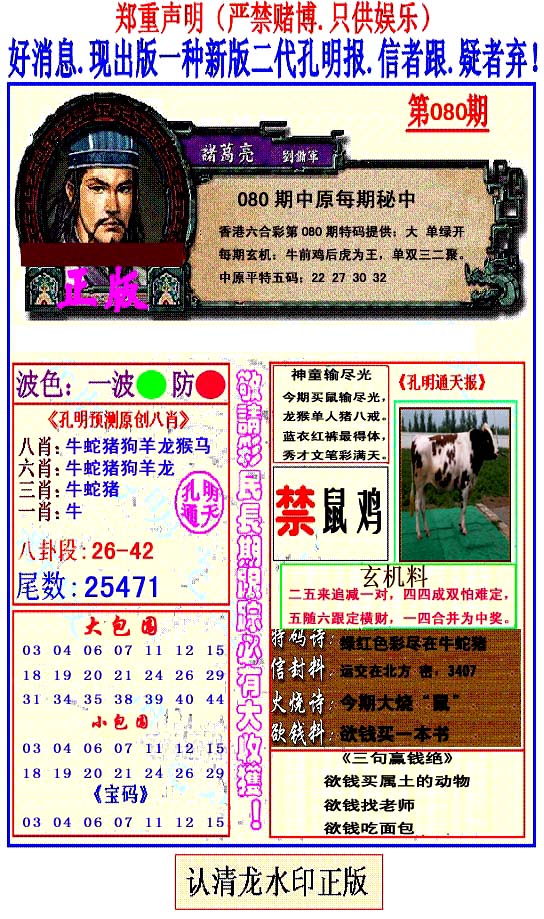 郑重声明（严禁赌博.只供娱乐）
好消息.现出版一种新版二代孔明报.信者跟.疑者弃!
第080期
諸葛亮 劉備軍
080期中原每期秘中
香港六合彩第080期特码提供：大 单绿开
每期玄机：牛前鸡后虎为王，单双三二聚。
中原平特五码：22 27 30 32
正版
波色：一波 防
《孔明预测原创八肖》
八肖：牛蛇猪狗羊龙猴马
六肖：牛蛇猪狗羊龙
三肖：牛蛇猪
一肖：牛
孔明
通天
八卦段：26-42
尾数：25471
大包围
03 04 06 07 11 12 15
18 19 20 21 24 26 29
31 34 35 38 39 40 44
小包围
03 04 06 07 11 12 15
18 19 20 21 24 26 29
《宝码》
03 04 06 07 11 12 15
敬請彩民長期跟踪必有大收獲！
神童输尽光
今期买鼠输尽光，
龙猴单人猪八戒。
蓝衣红裤最得体，
秀才文笔彩满天。
《孔明通天报》
禁鼠鸡
玄机料
二五来追减一对，四四成双怕难定，
五随六跟定横财，一四合并为中奖。
特码诗：绿红色彩尽在牛蛇猪
信封料：运交在北方 密，3407
火烧诗：今期大烧“鼠”
欲钱料：欲钱买一本书
《三句赢钱绝》
欲钱买属土的动物
欲钱找老师
欲钱吃面包
认清龙水印正版